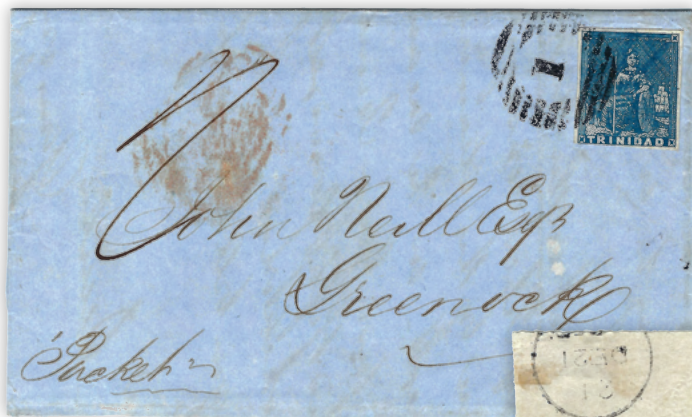 1
TRINIDAD
John Neill Esqr
Greenock
Packet
DE 21